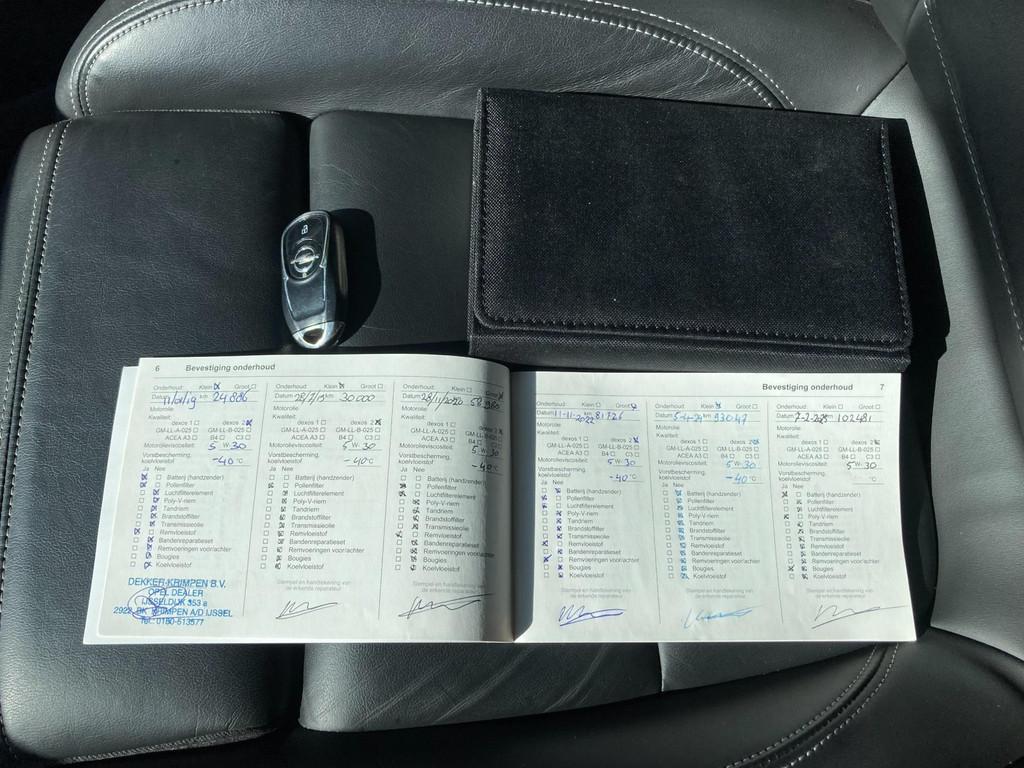 6 Bevestiging onderhoud
Onderhoud: Klein Groot
Datum 11/01/19 km 24886
Motorolie
Kwaliteit:
dexos 1 dexos 2
GM-LL-A-025 GM-LL-B-025
ACEA A3 B4 C3
Motorolieviscositeit: 5 W- 30
Vorstbescherming,
koelvloeistof -40°C
Ja Nee
Batterij (handzender)
Pollenfilter
Luchtfilterelement
Poly-V-riem
Tandriem
Brandstoffilter
Transmissieolie
Remvloeistof
Bandenreparatieset
Remvoeringen voor/achter
Bougies
Koelvloeistof
DEKKER-KRIMPEN B.V.
OPEL DEALER
IJSSELDIJK 353 a
2922 BK KRIMPEN A/D IJSSEL
Tel.: 0180-513577
Onderhoud: Klein Groot
Datum km 30000
Motorolie
Kwaliteit:
dexos 1 dexos 2
GM-LL-A-025 GM-LL-B-025
ACEA A3 B4 C3
Motorolieviscositeit: 5 W- 30
Vorstbescherming,
koelvloeistof -40°C
Ja Nee
Batterij (handzender)
Pollenfilter
Luchtfilterelement
Poly-V-riem
Tandriem
Brandstoffilter
Transmissieolie
Remvloeistof
Bandenreparatieset
Remvoeringen voor/achter
Bougies
Koelvloeistof
Stempel en handtekening van
de erkende reparateur
Onderhoud: Klein
Datum 28/11/2020
Motorolie
Kwaliteit:
dexos 1 dexos 2
GM-LL-A-025 GM-LL-B-025
ACEA A3 B4 C3
Motorolieviscositeit: 5 W- 30
Vorstbescherming,
koelvloeistof -40°C
Ja Nee
Batterij (handzender)
Pollenfilter
Luchtfilterelement
Poly-V-riem
Tandriem
Brandstoffilter
Transmissieolie
Remvloeistof
Bandenreparatieset
Remvoeringen voor/achter
Bougies
Koelvloeistof
Stempel en handtekening van
de erkende reparateur
Bevestiging onderhoud 7
Onderhoud: Klein Groot
Datum 11-11-2022 km 81726
Motorolie
Kwaliteit:
dexos 1 dexos 2
GM-LL-A-025 GM-LL-B-025
ACEA A3 B4 C3
Motorolieviscositeit: 5 W- 30
Vorstbescherming,
koelvloeistof -40°C
Ja Nee
Batterij (handzender)
Pollenfilter
Luchtfilterelement
Poly-V-riem
Tandriem
Brandstoffilter
Transmissieolie
Remvloeistof
Bandenreparatieset
Remvoeringen voor/achter
Bougies
Koelvloeistof
Stempel en handtekening van
de erkende reparateur
Onderhoud: Klein Groot
Datum 5-4-24 km 93047
Motorolie
Kwaliteit:
dexos 1 dexos 2
GM-LL-A-025 GM-LL-B-025
ACEA A3 B4 C3
Motorolieviscositeit: 5 W- 30
Vorstbescherming,
koelvloeistof -40°C
Ja Nee
Batterij (handzender)
Pollenfilter
Luchtfilterelement
Poly-V-riem
Tandriem
Brandstoffilter
Transmissieolie
Remvloeistof
Bandenreparatieset
Remvoeringen voor/achter
Bougies
Koelvloeistof
Stempel en handtekening van
de erkende reparateur
Onderhoud: Klein Groot
Datum km 102481
Motorolie
Kwaliteit:
dexos 1 dexos 2
GM-LL-A-025 GM-LL-B-025
ACEA A3 B4 C3
Motorolieviscositeit: 5 W- 30
Vorstbescherming,
koelvloeistof °C
Ja Nee
Batterij (handzender)
Pollenfilter
Luchtfilterelement
Poly-V-riem
Tandriem
Brandstoffilter
Transmissieolie
Remvloeistof
Bandenreparatieset
Remvoeringen voor/achter
Bougies
Koelvloeistof
Stempel en handtekening van
de erkende reparateur